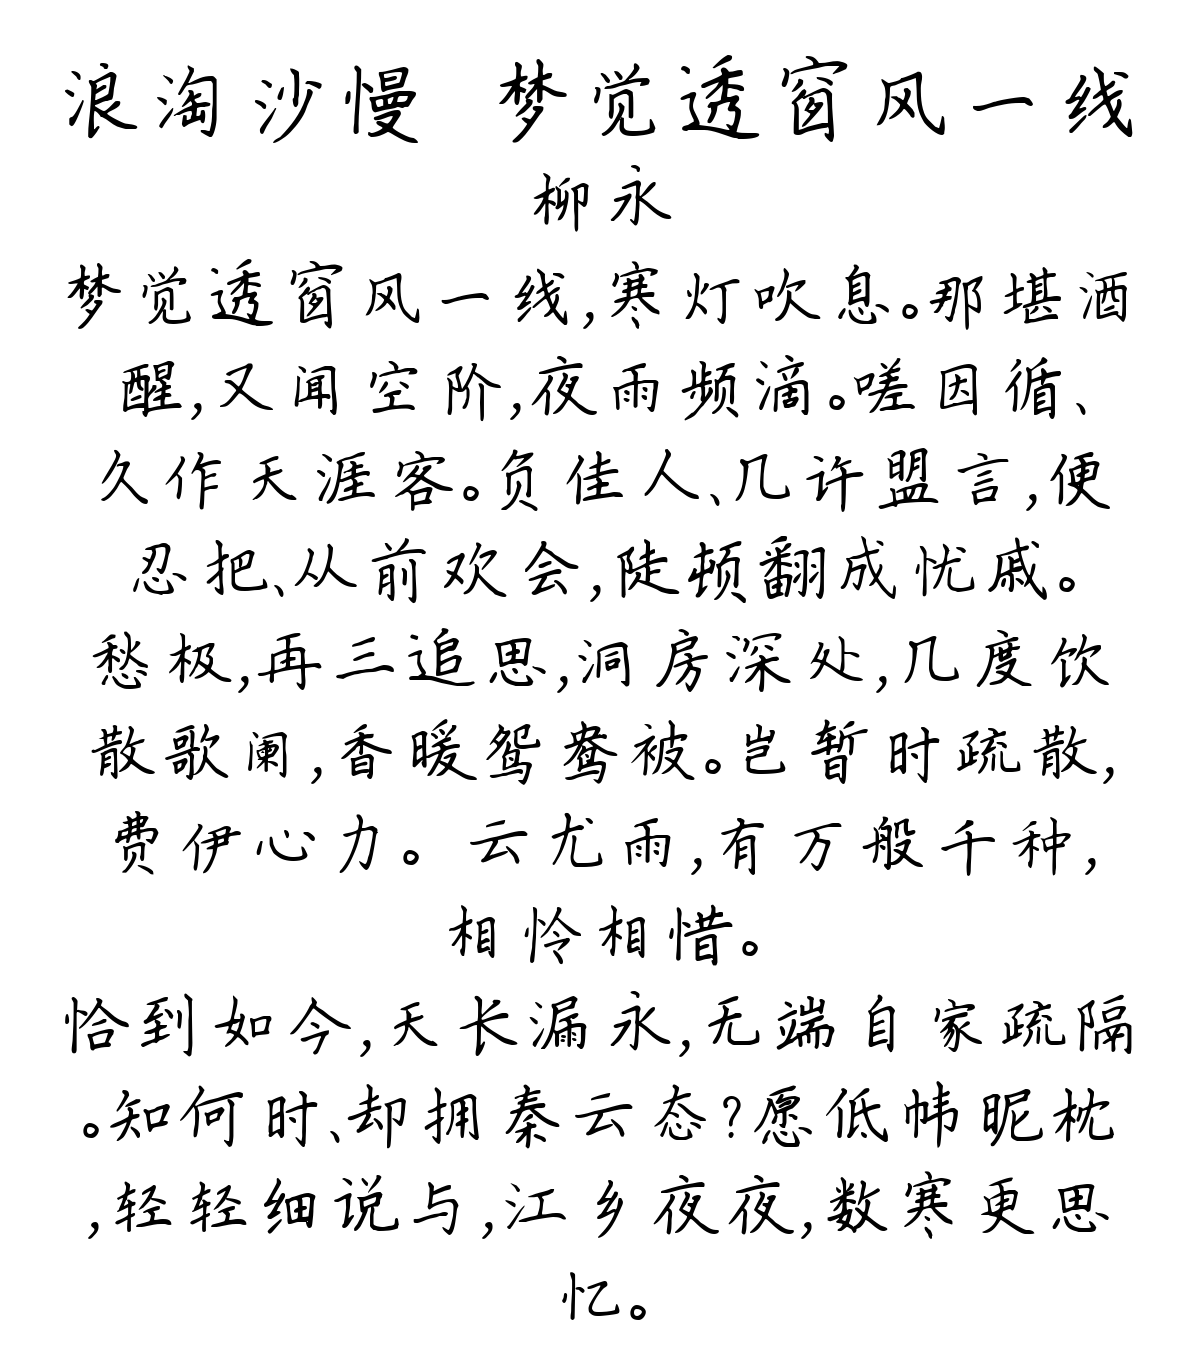 浪淘沙慢 梦觉透窗风一线
柳永
梦觉透窗风一线,寒灯吹息。那堪酒
醒,又闻空阶,夜雨频滴。嗟因循、
久作天涯客。负佳人、几许盟言,便
忍把、从前欢会,陡顿翻成忧戚。
愁极,再三追思,洞房深处,几度饮
散歌阑,香暖鸳鸯被。岂暂时疏散,
费伊心力。云尤雨,有万般千种,
相怜相惜。
恰到如今,天长漏永,无端自家疏隔
。知何时、却拥秦云态?愿低帏昵枕
,轻轻细说与,江乡夜夜,数寒更思
忆。